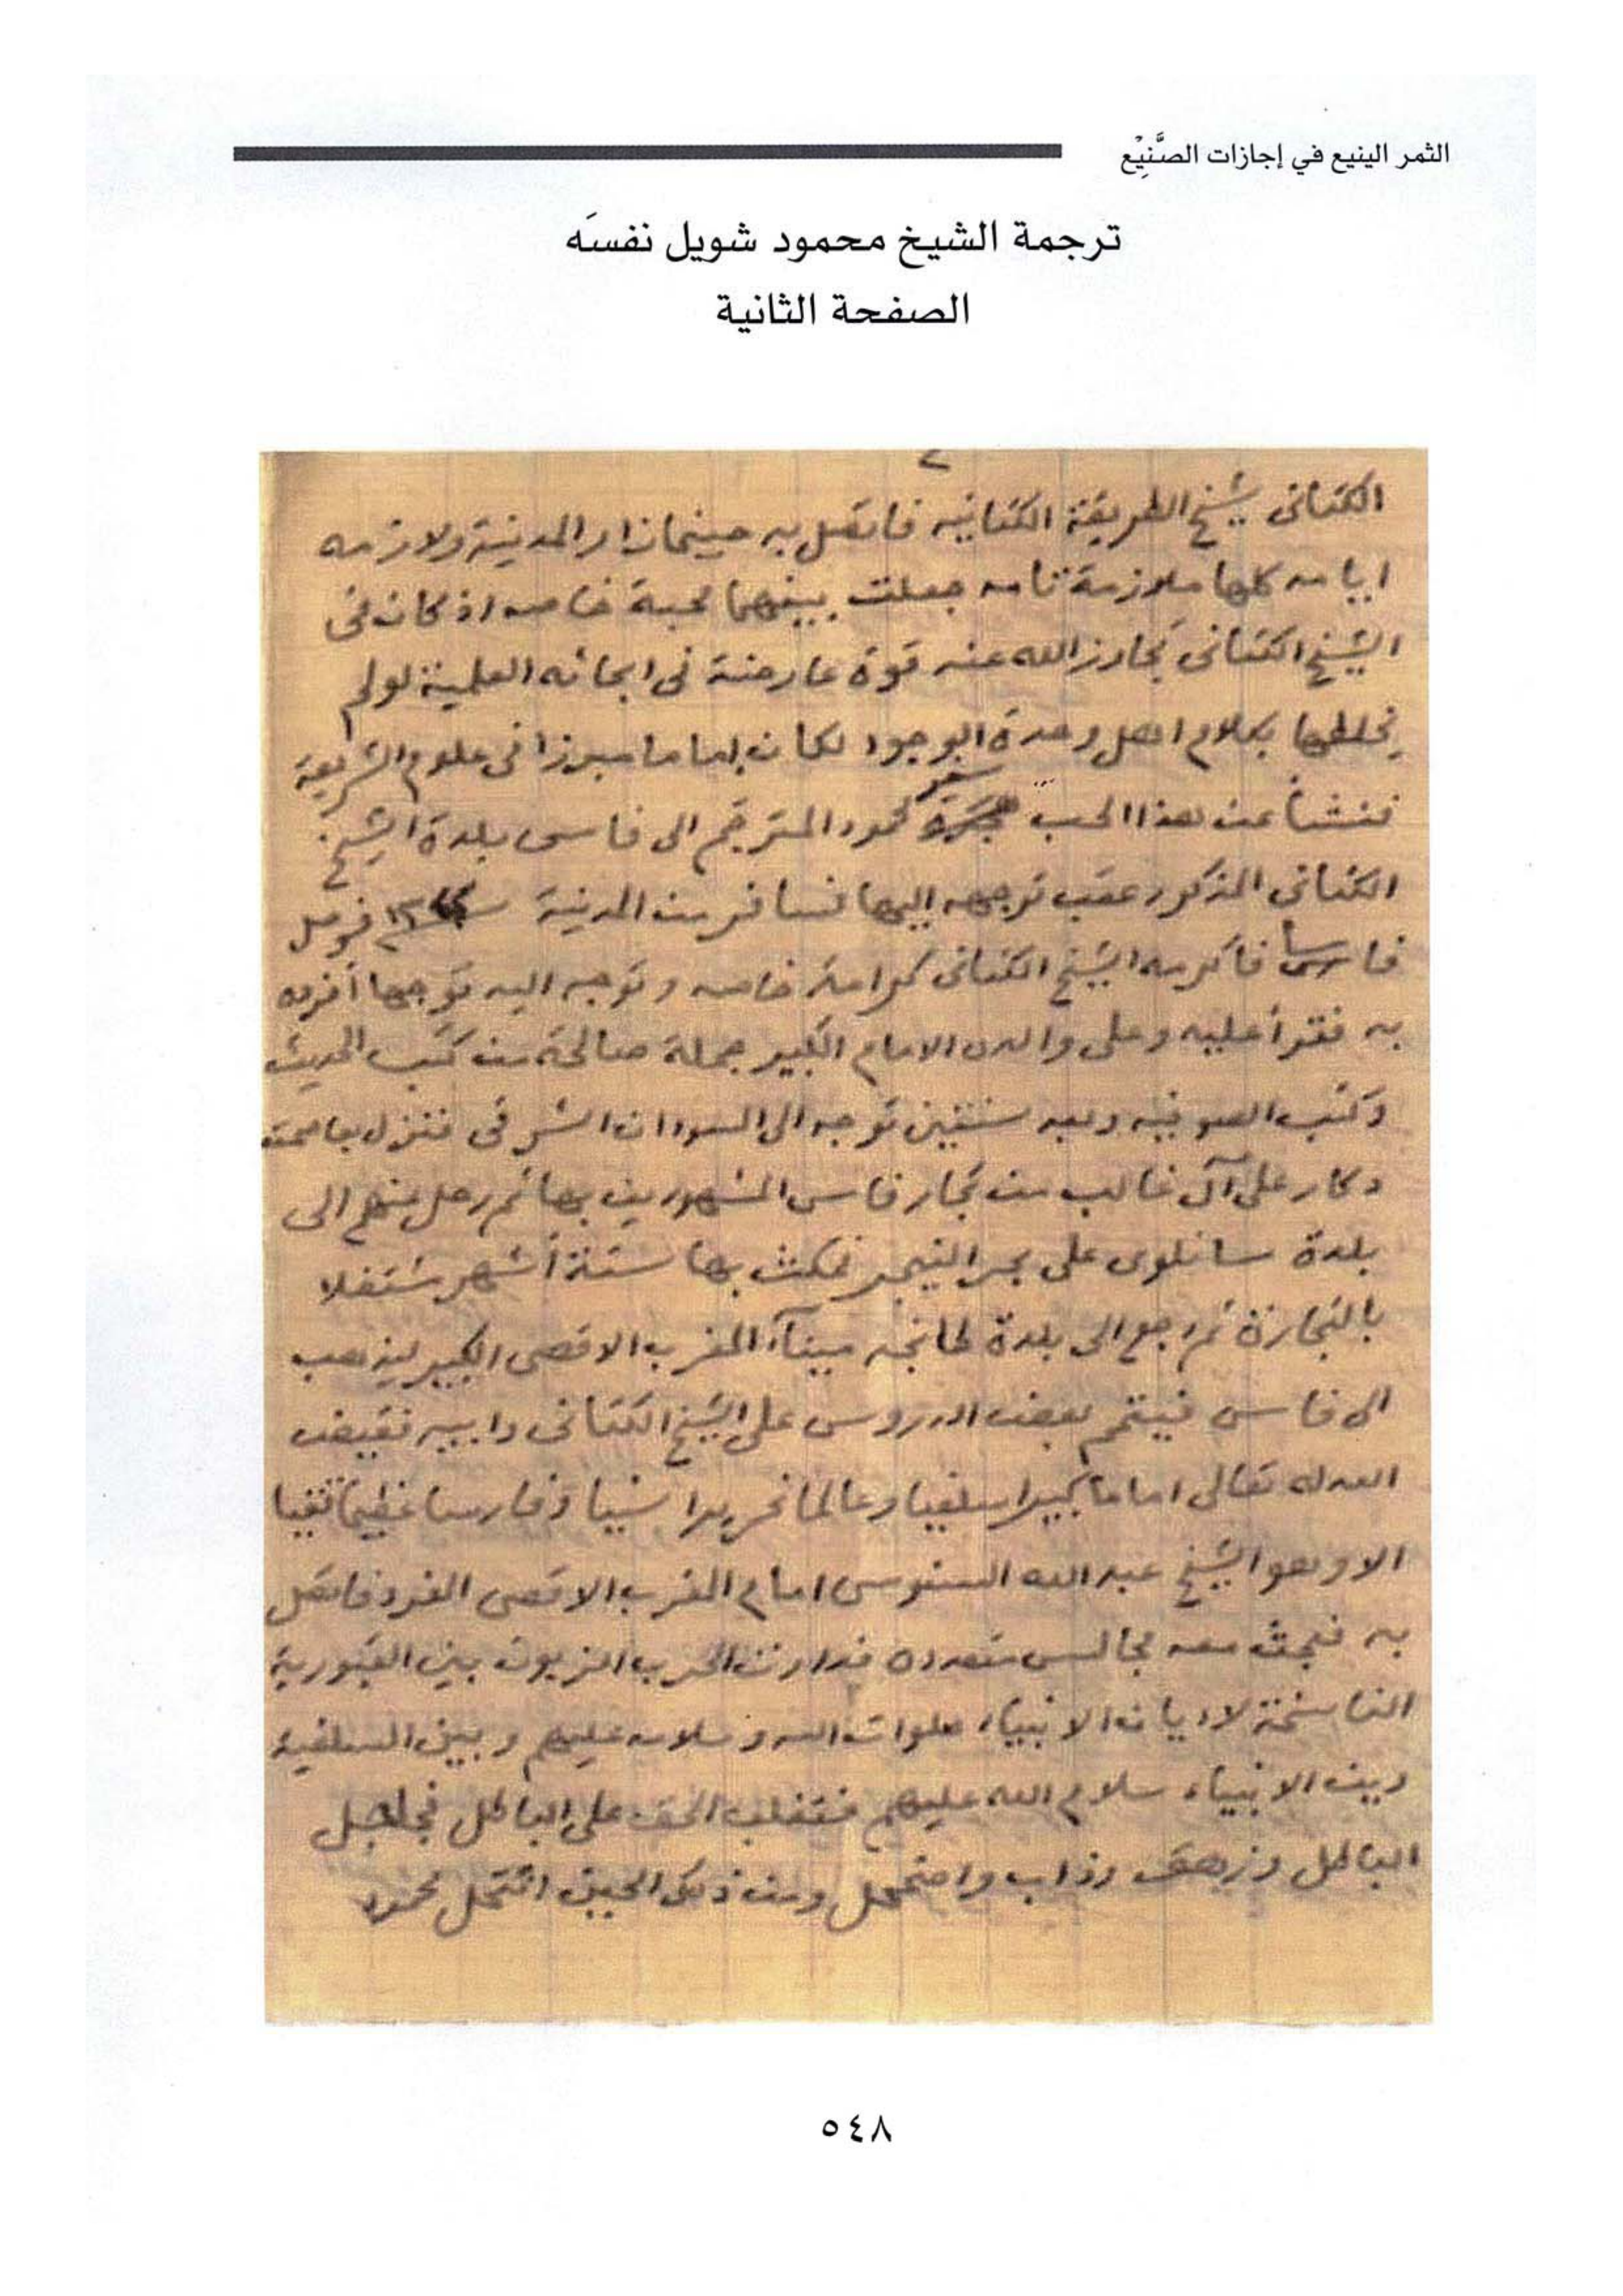 الثمر الينيع في إجازات الصَّنِيْع
ترجمة الشيخ محمود شويل نفسَه
الصفحة الثانية
٢
الكتانى شيخ الطريقة الكتانيه فاتصل به حينما زار المدينة ولازمه
ايامه كلها ملازمة تامه جعلت بينهما محبة خاصه اذ كان فى
الشيخ الكتانى تجاوز الله عنه قوة عارضة فى ابحاثه العلمية لو لم
يخلطها بكلام اهل وحدة الوجود لكان إماما مبرزا فى علوم الشريعة
فنشأ عن هذا الحب سفر محمود المترجم الى فاس بلدة الشيخ
الكتانى المذكور عقب توجهه اليها فسافر من المدينة سنة فوصل
فاسا فأكرمه الشيخ الكتانى كرامة خاصه وتوجه اليه توجها أفرده
به فقرأ عليه وعلى والده الامام الكبير جملة صالحة من كتب الحديث
وكتب الصوفيه وبعد سنتين توجه الى السودان الشرقى فنزل بعاصمته
دكار على آل غالب من تجار فاس المشهورين بها ثم رحل منهم الى
بلدة سانلوى على بحر النيجر فمكث بها ستة أشهر مشتغلا
بالتجارة ثم رجع الى بلدة طانجه ميناء المغرب الاقصى الكبير ليذهب
الى فاس فيتمم بعض الدروس على الشيخ الكتانى وابيه فقيض
الله له تعالى اماما كبيرا سلفيا وعالما نحريرا سنيا وفارسا عظيما تقيا
الا وهو الشيخ عبد الله السنوسى امام المغرب الاقصى الفرد فاتصل
به فبحث معه مجالس متعدده فدارت الحرب الزبون بين القبورية
الناسخة لاديان الانبياء صلوات الله وسلامه عليهم وبين السلفية
دين الانبياء سلام الله عليهم فتغلب الحق على الباطل
الباطل وزهق وذاب واضمحل ومن ذلك الحين انتحل محمود
٥٤٨